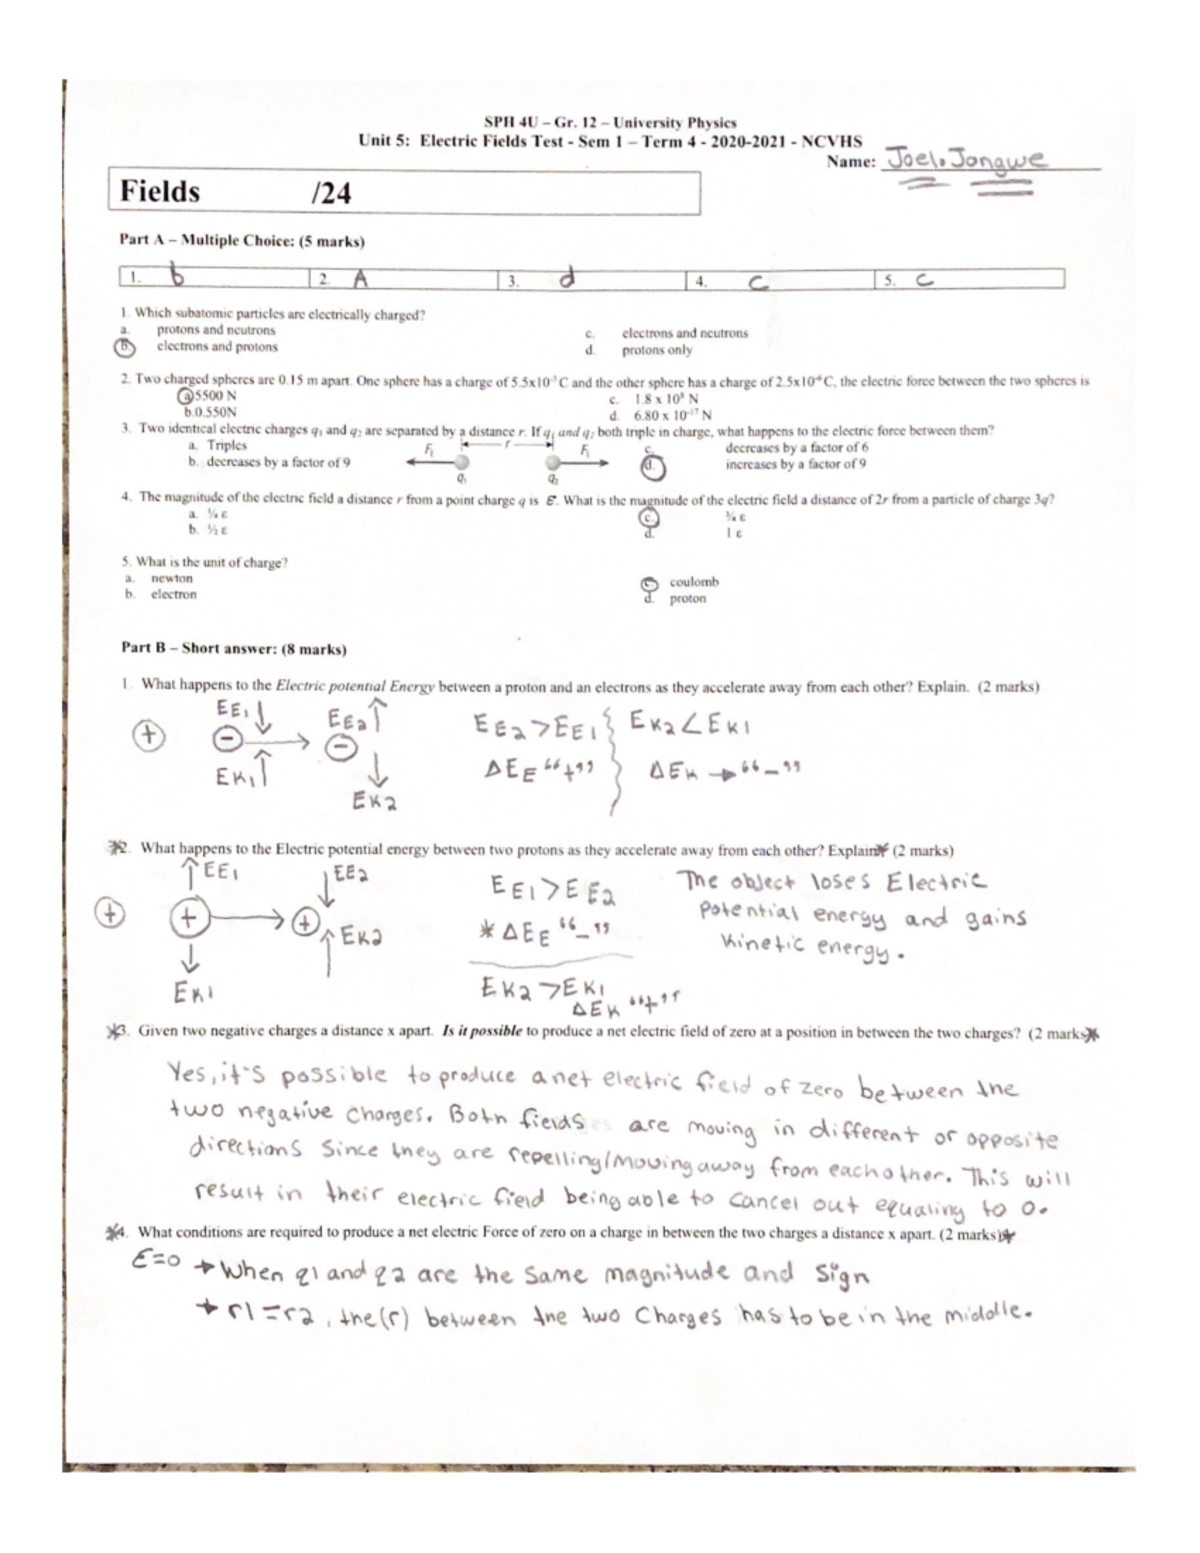 SPH 4U – Gr. 12 – University Physics
Unit 5: Electric Fields Test - Sem 1 – Term 4 - 2020-2021 - NCVHS
Name: Joel. Jongwe
Fields /24
Part A – Multiple Choice: (5 marks)
1. b 2. A 3. d 4. c 5. c
1. Which subatomic particles are electrically charged?
a. protons and neutrons c. electrons and neutrons
B. electrons and protons d. protons only
2. Two charged spheres are 0.15 m apart. One sphere has a charge of 5.5x10⁻³ C and the other sphere has a charge of 2.5x10⁻⁶ C, the electric force between the two spheres is
a) 5500 N c. 1.8 x 10⁸ N
b. 0.550N d. 6.80 x 10⁻¹⁷ N
3. Two identical electric charges q₁ and q₂ are separated by a distance r. If q₁ and q₂ both triple in charge, what happens to the electric force between them?
a. Triples F₁ r F₁ c. decreases by a factor of 6
b. decreases by a factor of 9 d. increases by a factor of 9
q₁ q₂
4. The magnitude of the electric field a distance r from a point charge q is ε. What is the magnitude of the electric field a distance of 2r from a particle of charge 3q?
a. ¼ ε c. ¾ ε
b. ½ ε d. 1 ε
5. What is the unit of charge?
a. newton c. coulomb
b. electron d. proton
Part B – Short answer: (8 marks)
1. What happens to the Electric potential Energy between a proton and an electrons as they accelerate away from each other? Explain. (2 marks)
EE1 EE2 EE2 > EE1 EK2 < EK1
+ − −
EK1 ΔEE "+" ΔEK → "−"
EK2
*2. What happens to the Electric potential energy between two protons as they accelerate away from each other? Explain* (2 marks)
EE1 EE2 EE1 > EE2 The object loses Electric
+ + + Potential energy and gains
EK2 * ΔEE "−" Kinetic energy.
EK1 EK2 > EK1
ΔEK "+"
*3. Given two negative charges a distance x apart. Is it possible to produce a net electric field of zero at a position in between the two charges? (2 marks)*
Yes, it's possible to produce a net electric field of zero between the
two negative charges. Both fields are moving in different or opposite
directions since they are repelling/moving away from each other. This will
result in their electric field being able to cancel out equaling to 0.
*4. What conditions are required to produce a net electric Force of zero on a charge in between the two charges a distance x apart. (2 marks)*
ε=0 → When q1 and q2 are the same magnitude and sign
→ r1 = r2, the (r) between the two Charges has to be in the middle.